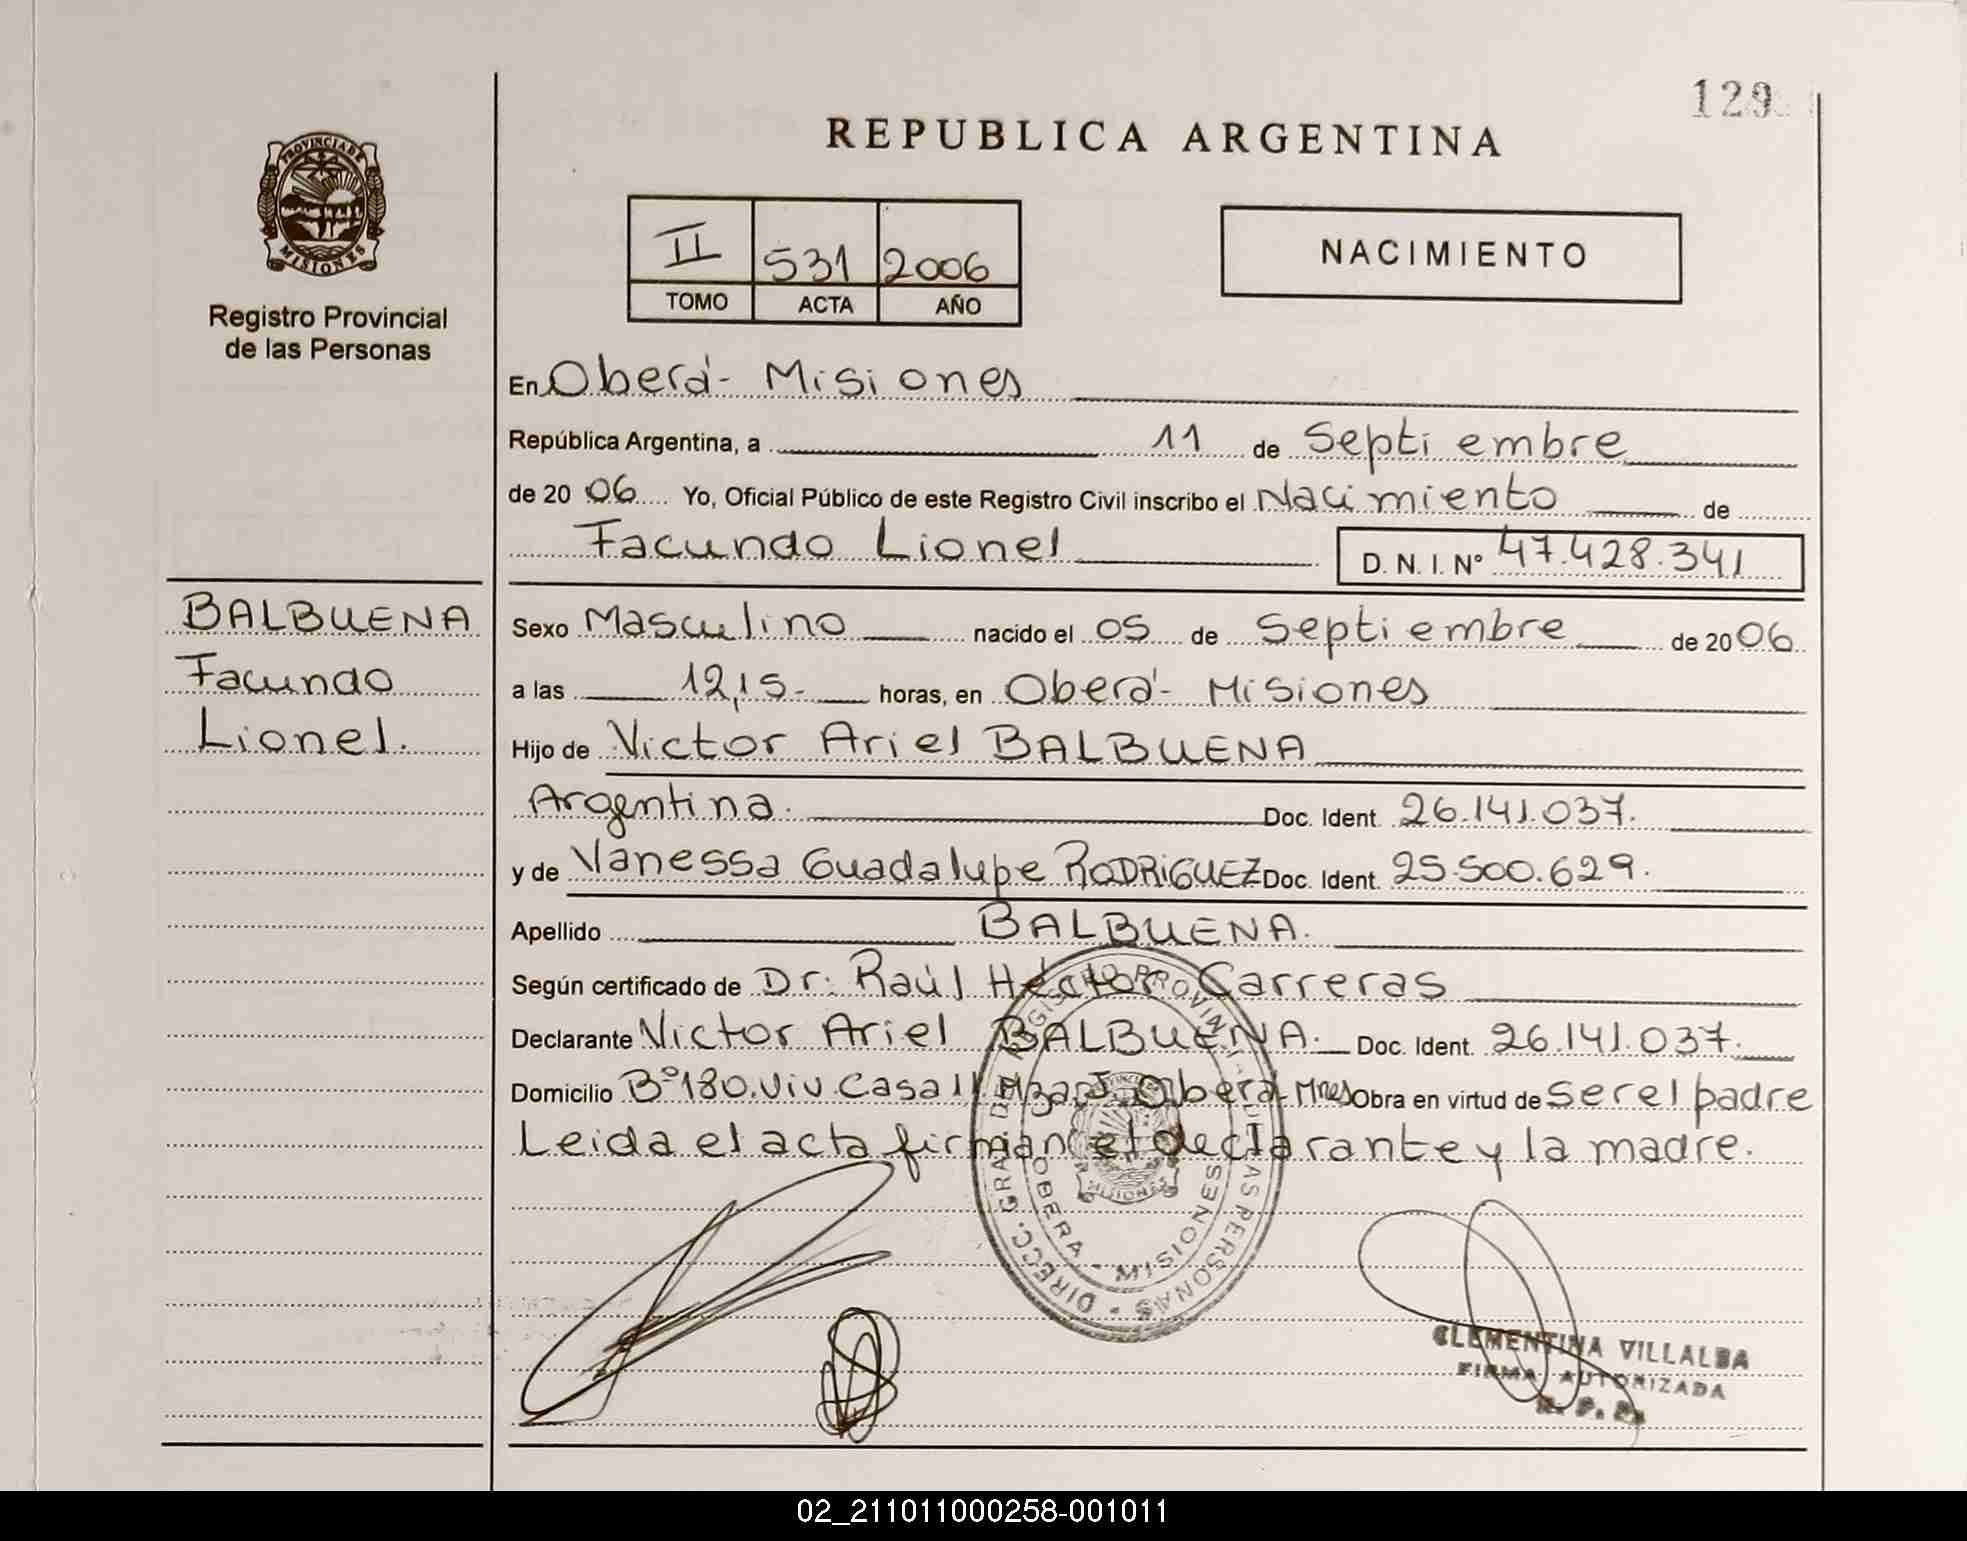 129
REPUBLICA ARGENTINA
PROVINCIA DE
MISIONES
Registro Provincial
de las Personas
II 531 2006
TOMO ACTA AÑO
NACIMIENTO
En Oberá - Misiones
República Argentina, a 11 de Septiembre
de 20 06 Yo, Oficial Público de este Registro Civil inscribo el Nacimiento de
Facundo Lionel D. N. I. Nº 47.428.341
BALBUENA
Facundo
Lionel.
Sexo Masculino nacido el 05 de Septiembre de 20 06
a las 12,15- horas, en Oberá - Misiones
Hijo de Victor Ariel BALBUENA
Argentina. Doc. Ident. 26.141.037.
y de Vanessa Guadalupe RODRIGUEZ Doc. Ident. 25.500.629.
Apellido BALBUENA.
Según certificado de Dr. Raúl Héctor Carreras
Declarante Victor Ariel BALBUENA. Doc. Ident. 26.141.037.
Domicilio Bº 180. Viv. Casa 11 Oberá - Mnes Obra en virtud de ser el padre
Leida el acta firman el declarante y la madre.
DIRECC. GRAL. DEL REGISTRO PROVINCIAL DE LAS PERSONAS
OBERA - MISIONES
MISIONES
CLEMENTINA VILLALBA
FIRMA AUTORIZADA
R. P. P.
02_211011000258-001011